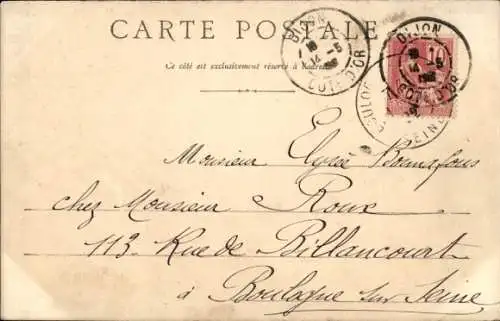 CARTE POSTALE
Ce côté est exclusivement réservé à l'adresse
DIJON
18
14 -5
COTE D'OR
DIJON
18
14 -5
COTE D'OR
10
SEINE
Monsieur Elysée Bonnafous
chez Monsieur Roux
113 Rue de Billancourt
à Boulogne sur Seine